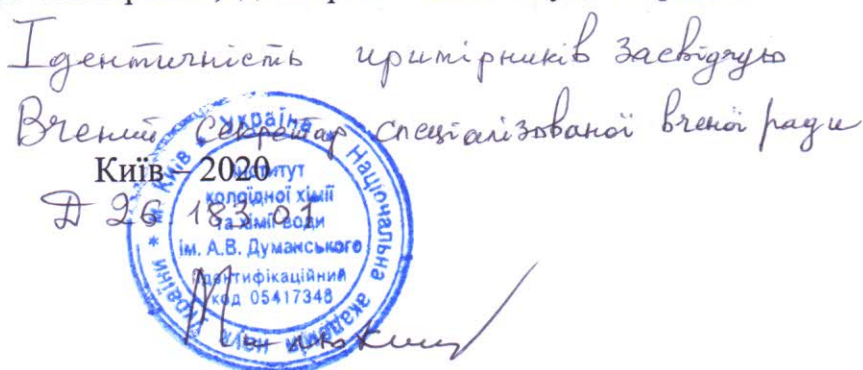 Ідентичність примірників засвідчую
Вчений секретар спеціалізованої вченої ради
Київ – 2020
Д 26.183.01
* м. Київ * Україна * Національна академія наук України
Інститут
колоїдної хімії
та хімії води
ім. А.В. Думанського
Ідентифікаційний
код 05417348